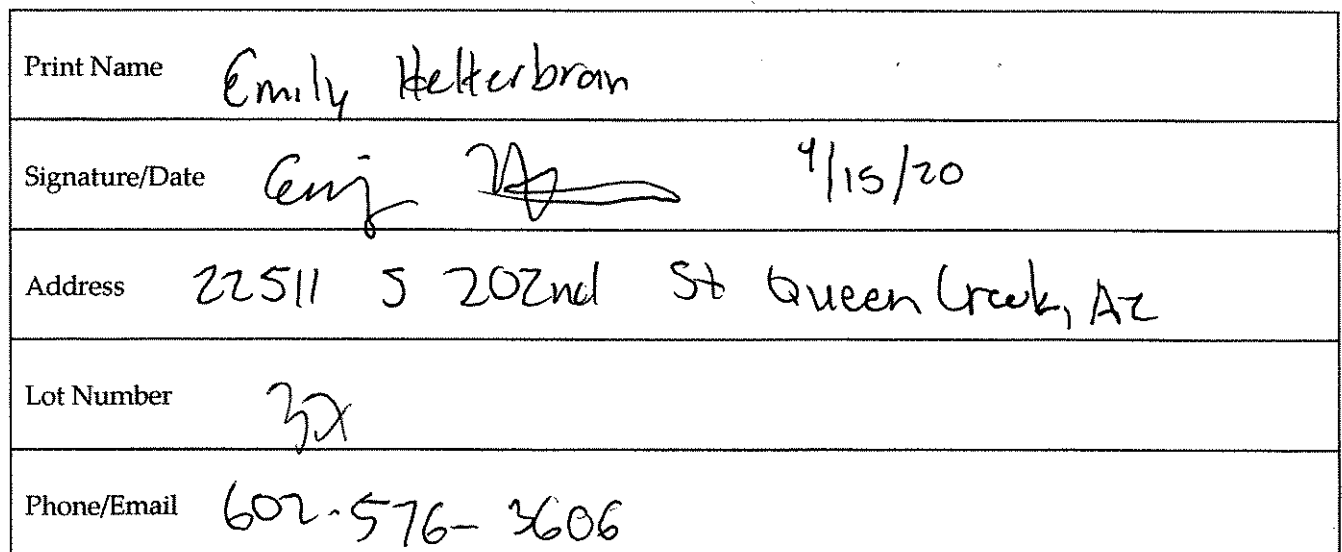 Print Name Emily Helterbran
Signature/Date 9/15/20
Address 22511 S 202nd St Queen Creek, Az
Lot Number
Phone/Email 602-576-3606